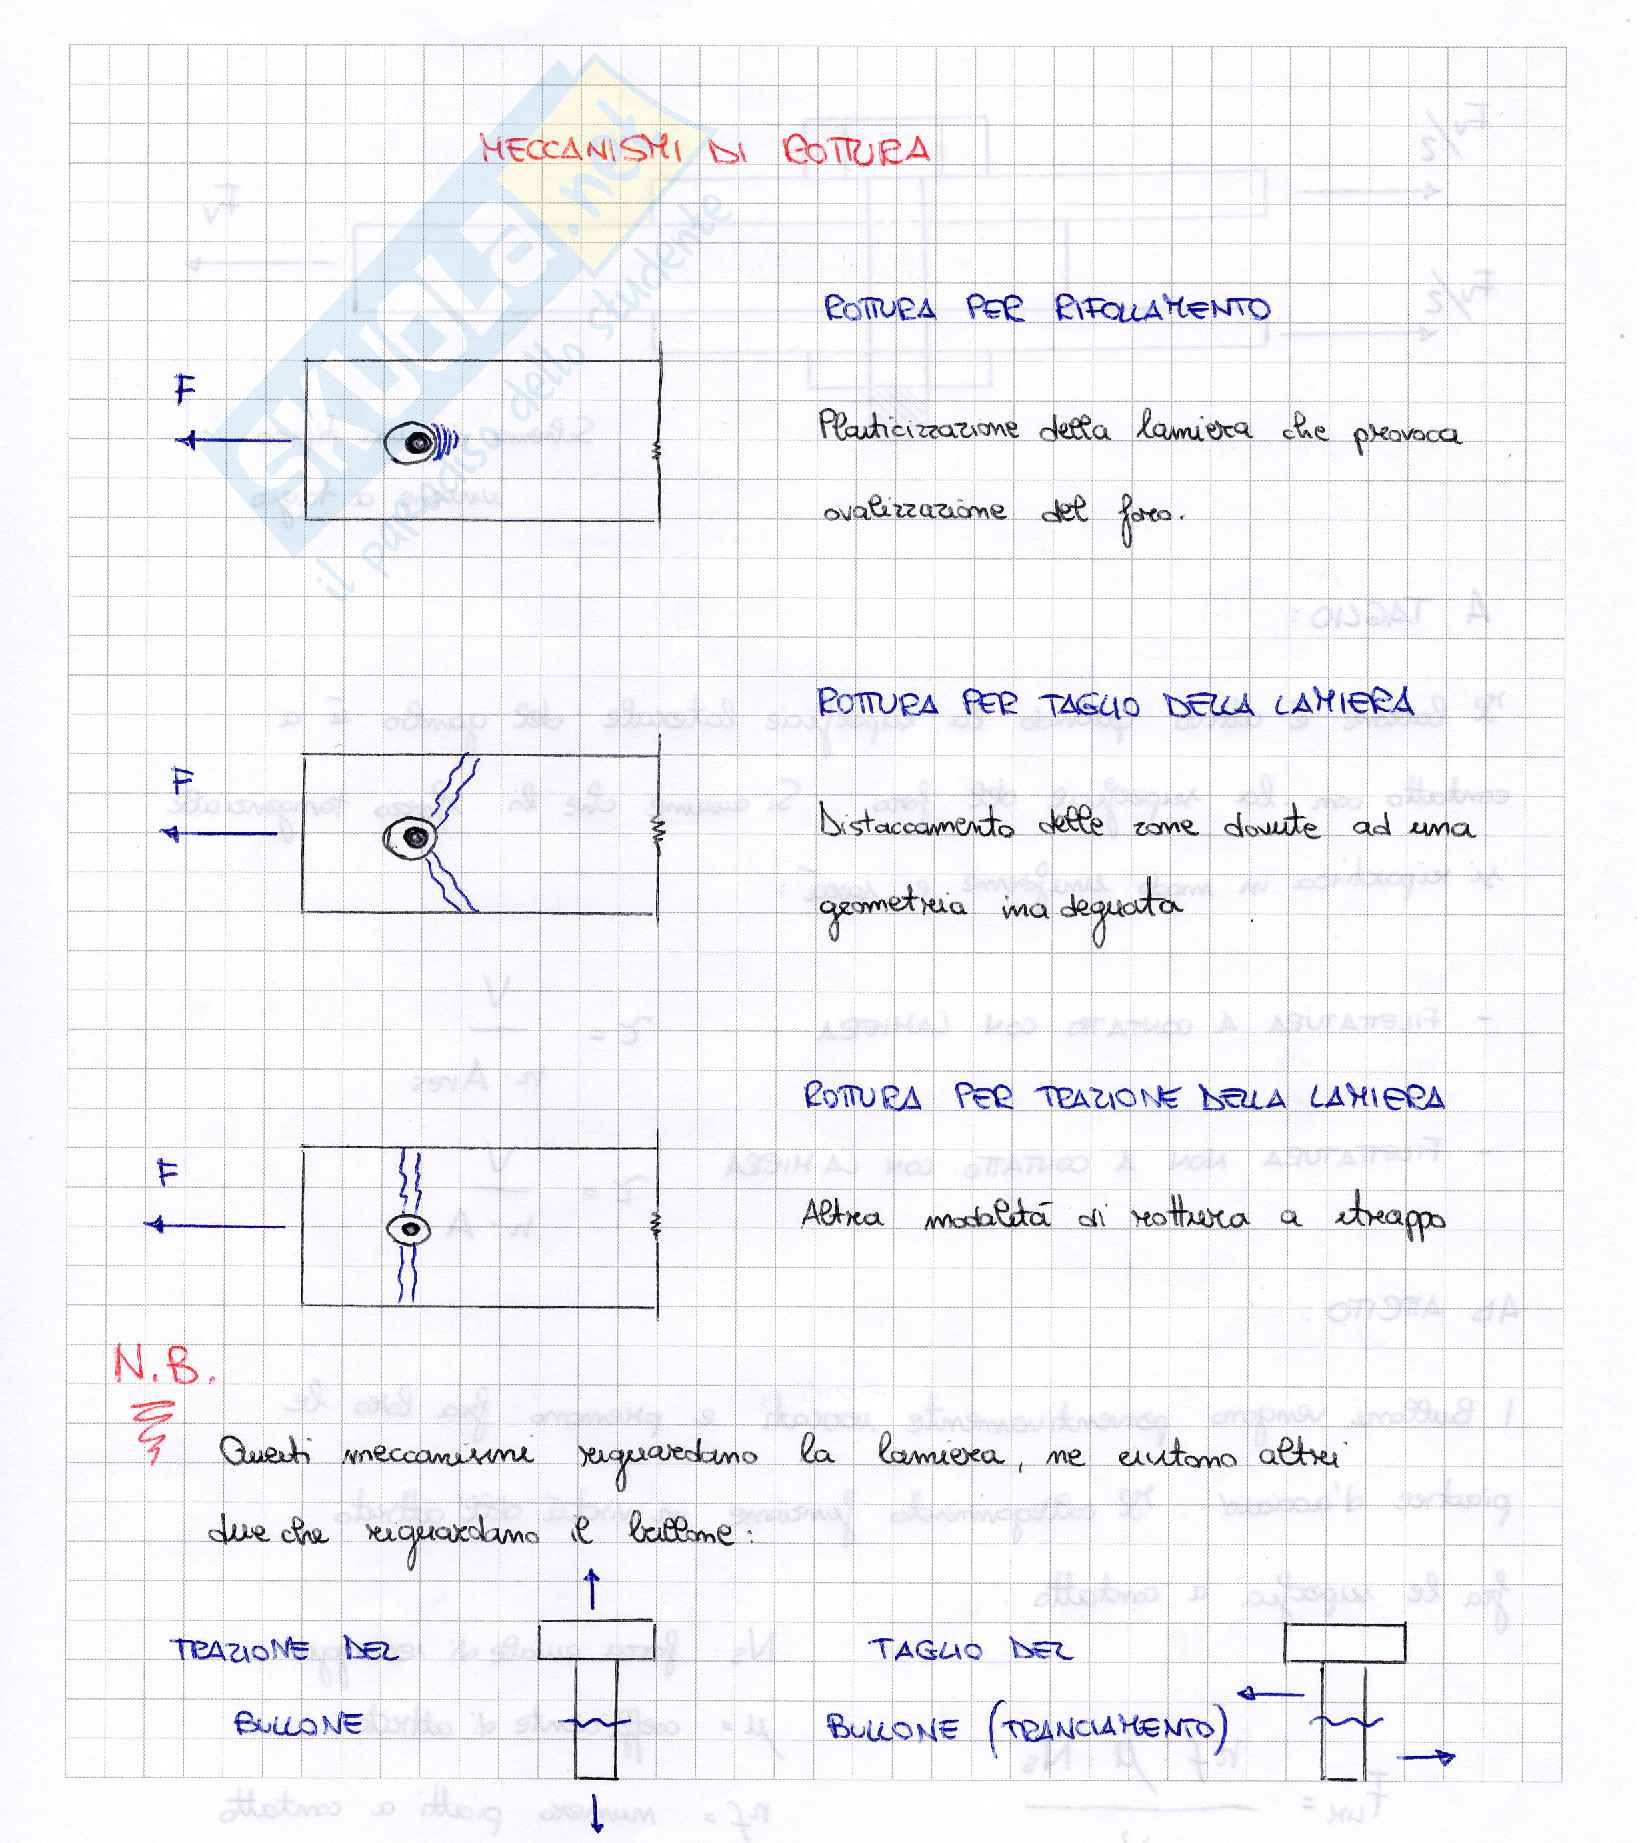 MECCANISMI DI ROTTURA
SKUOLA.net
il paradiso dello studente
ROTTURA PER RIFOLLAMENTO
F
Plasticizzazione della lamiera che provoca
ovalizzazione del foro.
ROTTURA PER TAGLIO DELLA LAMIERA
F
Distaccamento delle zone dovute ad una
geometria inadeguata
ROTTURA PER TRAZIONE DELLA LAMIERA
F
Altra modalità di rottura a strappo
N.B.
Questi meccanismi riguardano la lamiera, ne esistono altri
due che riguardano il bullone:
TRAZIONE DEL
BULLONE
TAGLIO DEL
BULLONE (TRANCIAMENTO)